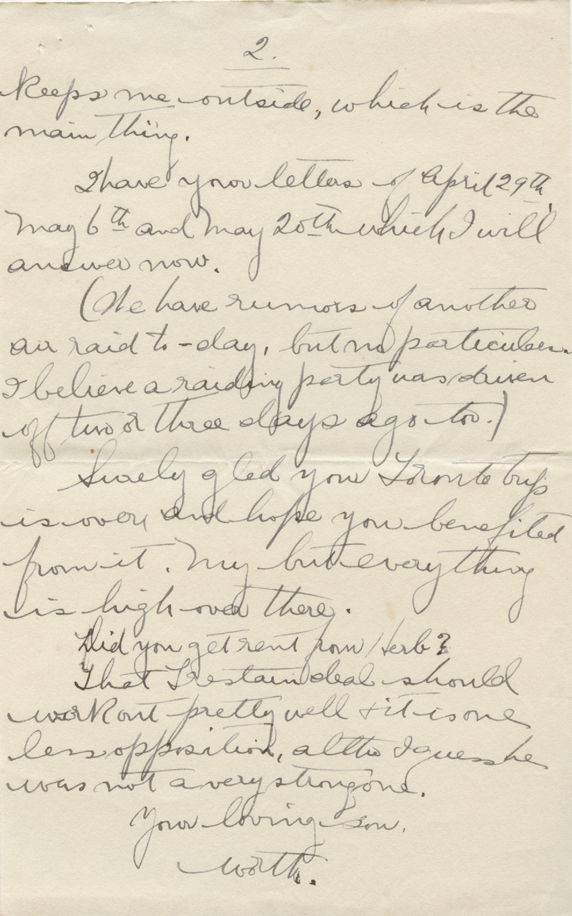 2.
keeps me outside, which is the
main thing.
I have your letters of April 29th,
May 6th and May 20th which I will
answer now.
(We have rumors of another
air raid to-day, but no particulars.
I believe a raiding party was driven
off two or three days ago too.)
Surely glad your Toronto trip
is over and hope you benefited
from it. My but everything
is high over there.
Did you get rent from Herb?
That deal should
work out pretty well & it is one
less opposition, altho I guess he
was not a very strong one.
Your loving son,
Worth.